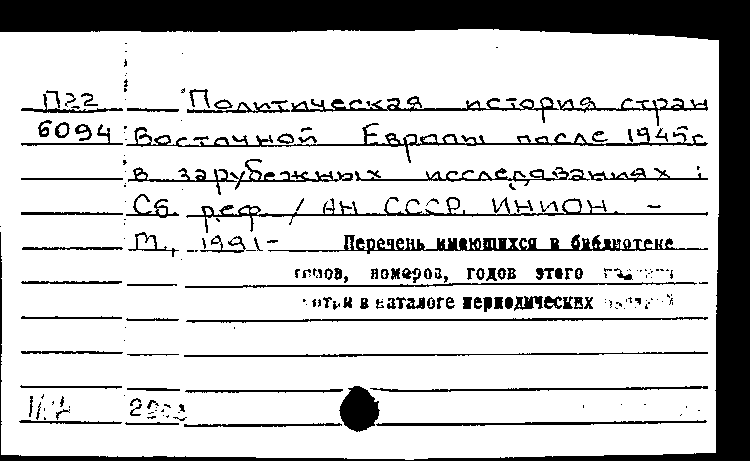 П22 Политическая история стран
6094 Восточной Европы после 1945г
в зарубежных исследованиях :
Сб. реф. / АН СССР. ИНИОН. -
М., 1991-
Перечень имеющихся в библиотеке
томов, номеров, годов этого
в каталоге периодических